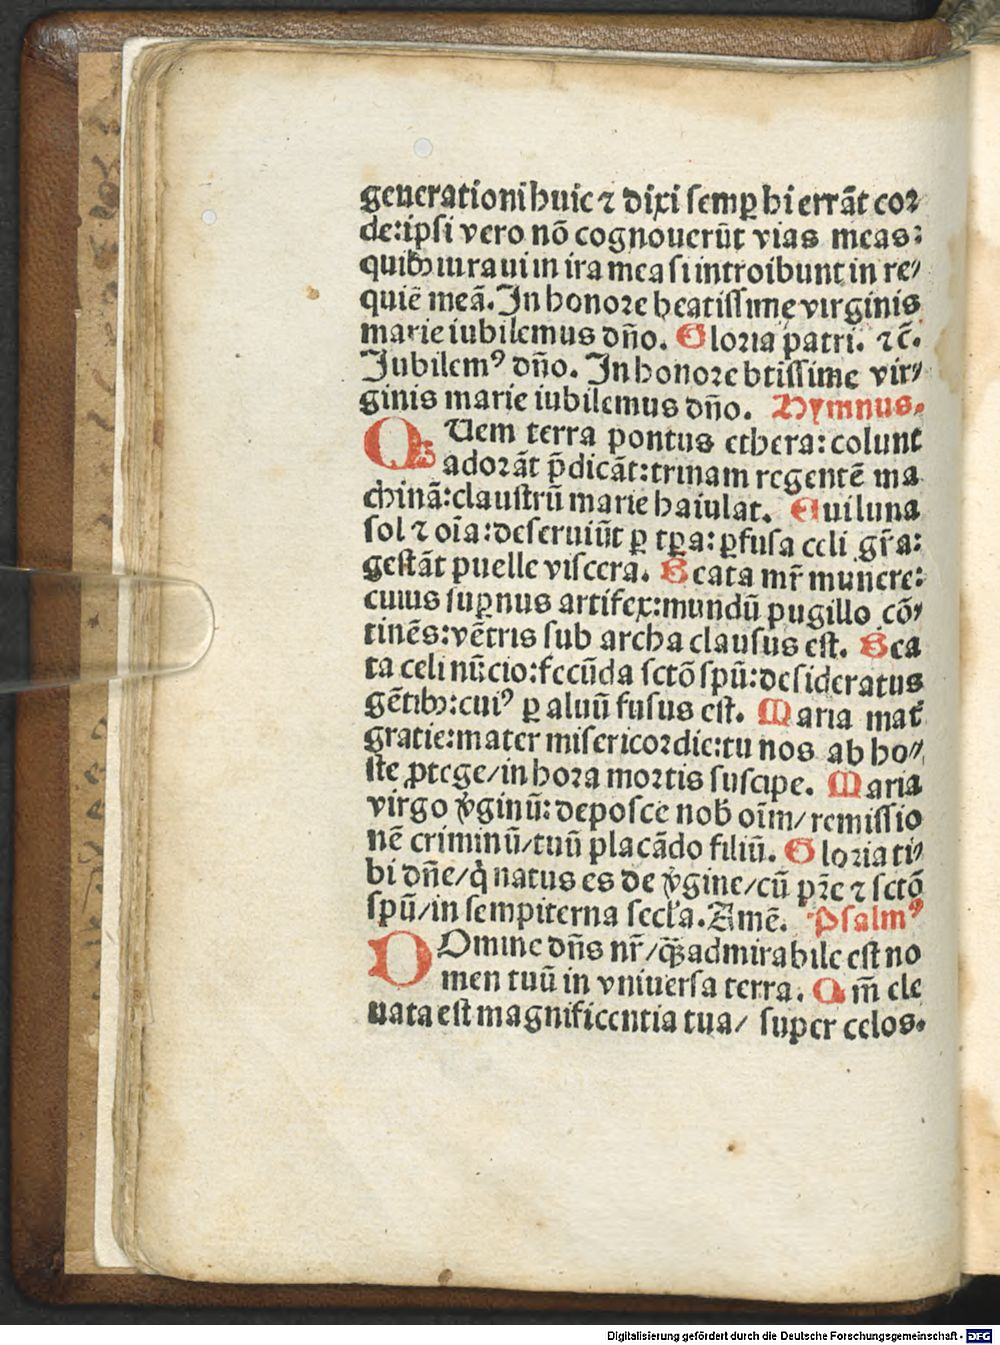 generationi huic ⁊ dixi semꝑ hi errāt coꝛ
de:ipsi vero nō cognouerūt vias meas:
quibꝫ iuraui in ira mea si introibunt in re⸗
quiē meā. In honoꝛe beatissime virginis
marie iubilemus dño. Gloꝛia patri. ⁊ c̄.
Jubilemꝰ dño. In honoꝛe btissime vir⸗
ginis marie iubilemus dño. Hymnus.
QUem terra pontus ethera: colunt
adoꝛāt p̄dicāt: trinam regentē ma
chinā: claustrū marie baiulat. Cui luna
sol ⁊ oīa: deseruiūt ꝑ tꝑa: ꝑfusa celi gr̄a:
gestāt puelle viscera. Beata mr̄ munere:
cuius suꝑnus artifex: mundū pugillo cō⸗
tinēs: vētris sub archa clausus est. Bea
ta celi nūcio: fecūda sctō spū: desideratus
gētibꝫ: cuiꝰ ꝑ aluū fusus est. Maria mat̄
gratie: mater misericoꝛdie: tu nos ab ho⸗
ste ꝓtege/ in hoꝛa moꝛtis suscipe. Maria
virgo v̄ginū: deposce nob̄ oīm/ remissio
nē criminū/ tuū placādo filiū. Gloꝛia ti⸗
bi dn̄e/ q̇ natus es de v̄gine/ cū pr̄e ⁊ sctō
spū/ in sempiterna secl̄a. Amē. Psalmꝰ
DOmine dn̄s nr̄/ q̄ꝫ admirabile est no
men tuū in vniuersa terra. Qm̄ ele
uata est magnificentia tua/ super celos.
Digitalisierung gefördert durch die Deutsche Forschungsgemeinschaft - DFG